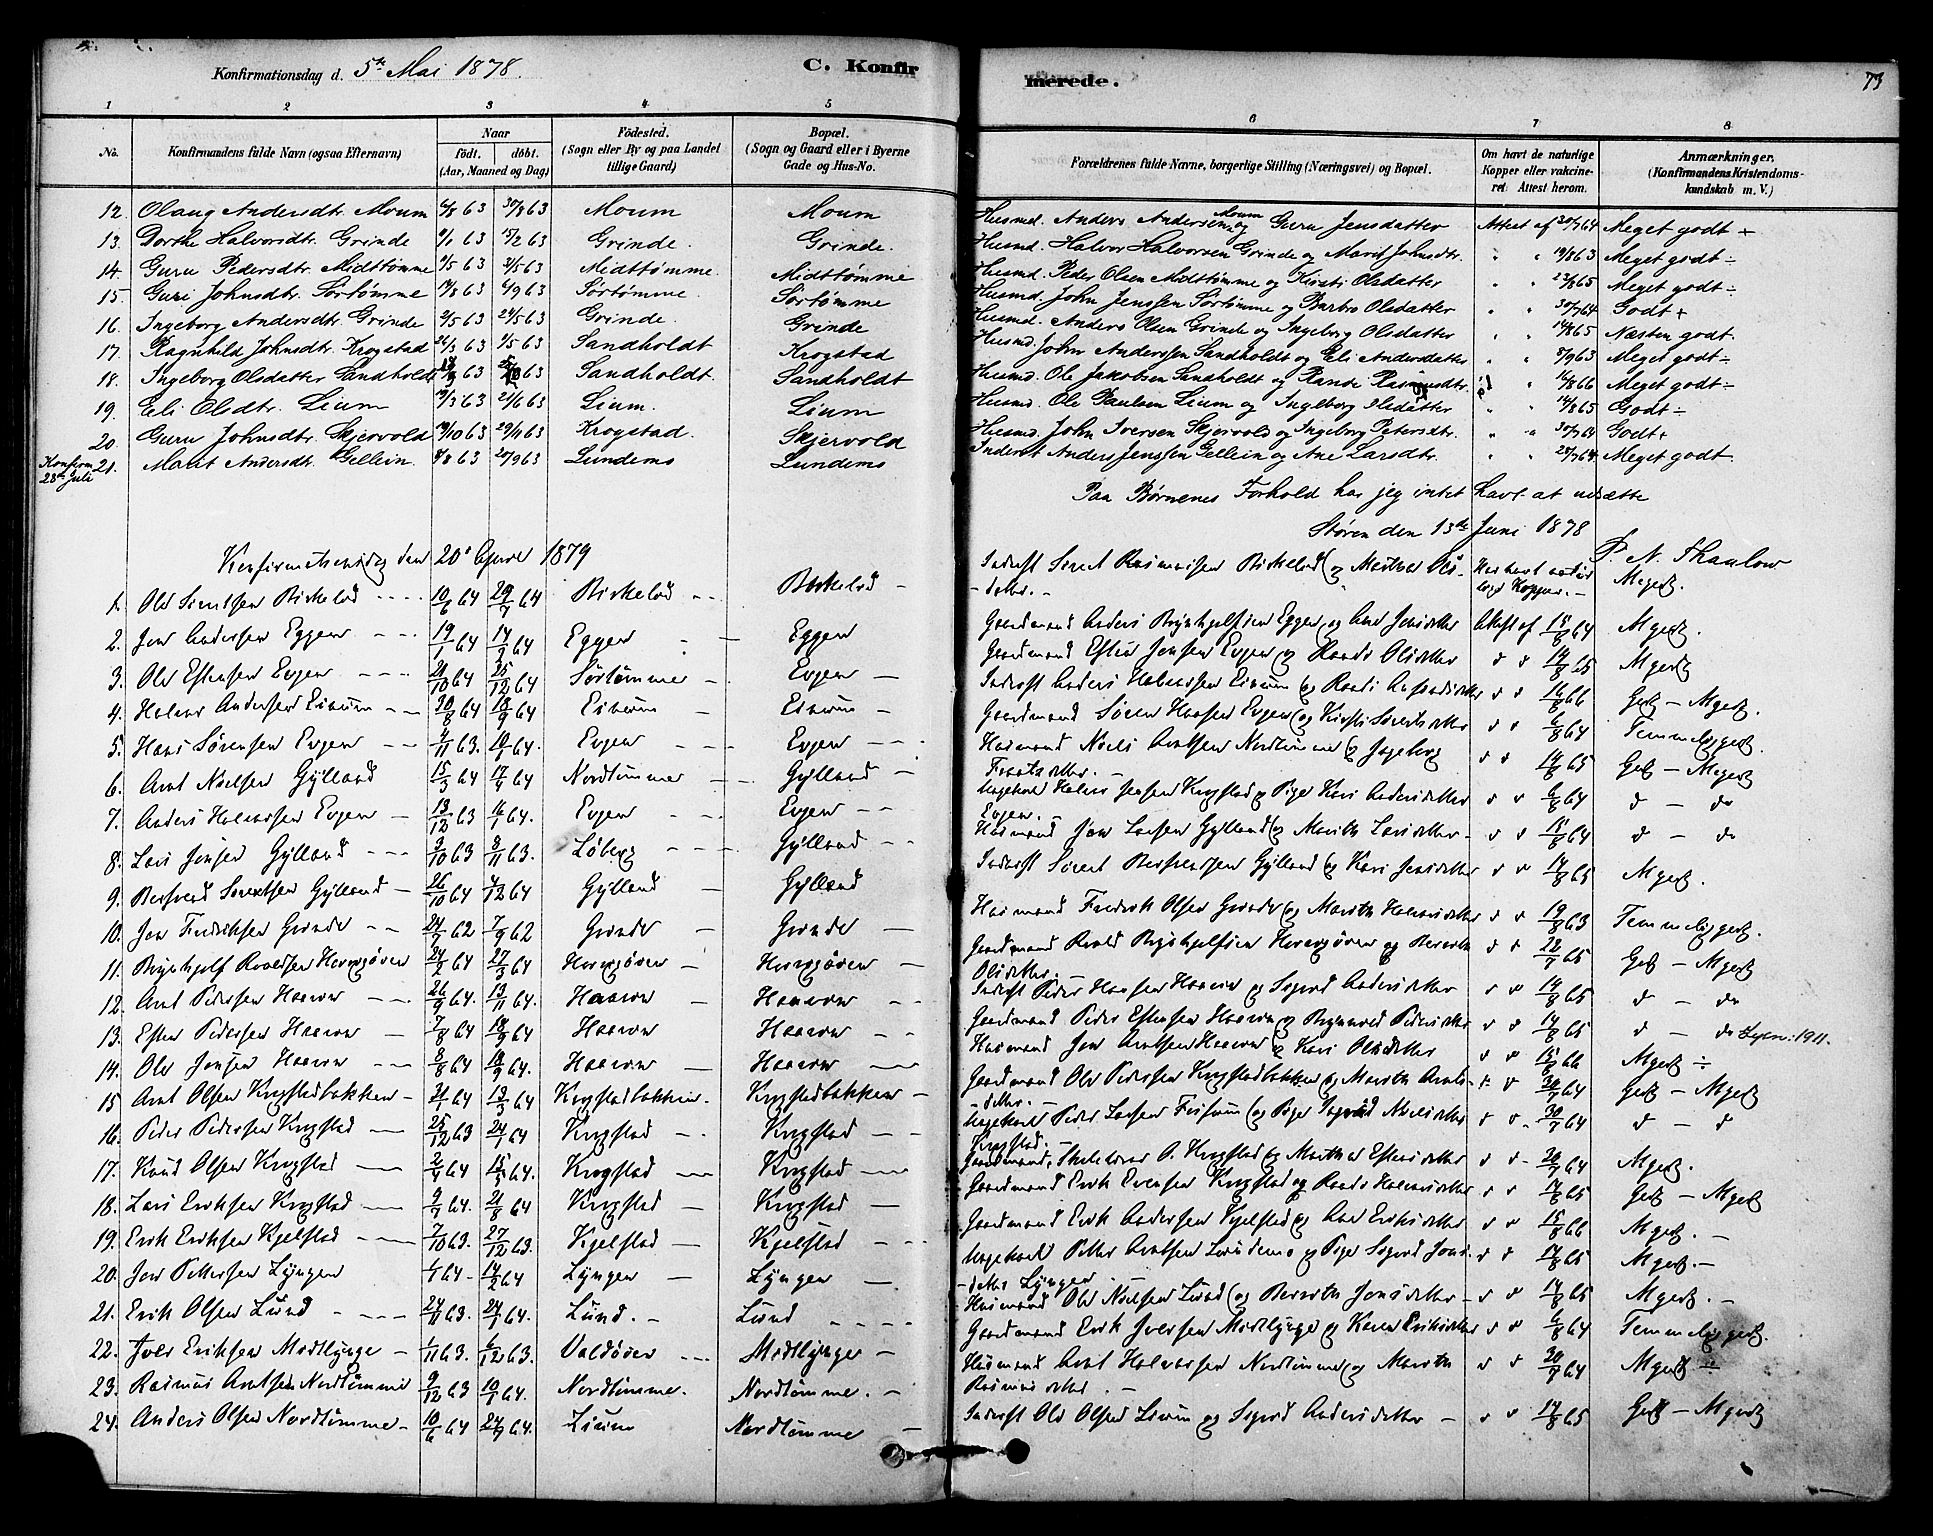 Konfirmationsdag d. 5te Mai 1878. C. Konfirmerede. 73
1 2 3 4 5 6 7 8
No. Konfirmandens fulde Navn (ogsaa Efternavn) Naar født. døbt. (Aar, Maaned og Dag) Fødested. (Sogn eller By og paa Landet tillige Gaard) Bopæl. (Sogn og Gaard eller i Byerne Gade og Hus-No. Forældrenes fulde Navne, borgerlige Stilling (Næringsvei) og Bopæl. Om havt de naturlige Kopper eller vakcineret. Attest herom. Anmærkninger. (Konfirmandens Kristendomskundskab m. V.)
12. Olaug Andersdtr. Moum 63 30/8 63 Moum Moum Husmd. Anders Andersen Moum og Guru Jensdatter Attest af 30/7 64 Meget godt +
13. Dorthe Halvorsdtr. Grinde 63 15/2 63 Grinde. Grinde. Husmd. Halvor Halvorsen Grinde og Marit Johnsdtr. " " 19/8 63 Meget godt ÷
14. Guru Pedersdtr. Midttømme 9/5 63 31/5 63 Midttømme. Midttømme Husmd. Peder Olsen Midttømme og Kirsti Olsdatter " " 23/8 65 Meget godt ÷
15. Guri Johnsdtr. Sørtømme 63 6/9 63 Sørtømme. Sørtømme Husmd. John Jenssen Sørtømme og Barbro Olsdatter " " 30/7 64 Godt +
16. Ingeborg Andersdtr. Grinde 2/5 63 24/5 63 Grinde. Grinde Husmd. Anders Olsen Grinde og Ingeborg Olsdatter " " 14/8 65 Næsten godt.
17. Ragnhild Johnsdtr. Krogstad 26/3 63 /5 63 Sandholdt Krogstad Husmd. John Anderssen Sandholdt og Eli Andersdatter " " 63 Meget godt ÷
18. Ingeborg Olsdatter Sandholdt 63 63 Sandholdt. Sandholdt Husmd. Ole Jakobsen Sandholdt og Randi Rasmusdtr. " " 16/8 66 Meget godt ÷
19. Eli Olsdtr. Lium 19/3 63 21/6 63 Lium. Lium Husmd. Ole Paulsen Lium og Ingeborg Olsdatter " " 14/8 65 Godt ÷
20. Guru Johnsdtr. Skjervold 19/10 63 29/11 63 Krogstad. Skjervold Husmd. John Iversen Skjervold og Ingeborg Petersdtr. " " 30/7 64 Godt +
Konfirm. 28de Juli 21. Marit Andersdtr. Gellein. 63 20/9 63 Lundems Lundems Inderst Anders Jenssen Gellein og Ane Larsdtr. " " 28/7 64 Meget godt.
Paa Børnenes Forhold har jeg intet havt at udsætte
Støren den 13de Juni 1878
P. N. Thaulow
Konfirmationsdag den 20de April 1879
1. Ole Sivertsen Birkelød 10/6 64 29/7 64 Birkelød Birkelød Inderst Sivert Rasmussen Birkelød og Marthe Olsdatter. Har havt naturlige Kopper. Mgodt.
2. Jon Andersen Eggen 19/1 64 14/2 64 Eggen Eggen Gaardmand Anders Brynhjelfsen Eggen og Ane Jonsdatter Attest af 15/8 64 Mgodt.
3. Ole Estensen Evjen 21/10 64 25/12 64 Sørtømme Evjen Gaardmand Esten Jensen Evjen og Randi Olsdatter d d 14/8 65 Mgodt
4. Halvor Andersen Eivum 30/8 64 18/9 64 Eivum Eivum Inderst Anders Halvorsen Eivum og Randi d d 16/8 66 Godt – Mgodt.
5. Hans Sørensen Evjen 4/11 63. 10/1 64. Evjen Evjen Gaardmand Søren Hansen Evjen og Kirsti Sivertsdatter d d 6/8 64 Temmeliggodt.
6. Arnt Nielsen Gylland 15/3 64 17/4 64 Nordtømme Gylland Husmand Niels Arntsen Nordtømme og Ingeborg d d 14/8 65 Godt – Mgodt
7. Anders Halvorsen Evjen 13/12 63 16/1 64. Evjen Evjen Ungekarl Halvor Jensen Krogstad og Pige Kari Andersdatter Evjen. d d 6/8 64 d – do
8. Lars Jensen Gylland 3/10 63 8/11 63. Løberg Gylland Husmand Jon Larsen Gylland og Marith Larsdatter d d 15/8 64 d – do
9. Bersvend Sivertsen Gylland 26/10 64 4/12 64 Gylland Gylland Inderst Sivert Bersvendsen Gylland og Kari Jensdatter d d 14/8 65 Mgodt.
10. Jon Fredriksen Grinde 24/7 62 7/9 62 Grinde Grinde Husmand Fredrik Olsen Grinde og Marith Halvorsdatter d d 19/8 63 Temmeliggodt.
11. Brynhjelf Roaldsen Haugøien 24/2 64 27/3 64 Haugøien Haugøien Gaardmand Roald Brynhjelfsen Haugøien og Berith Olsdatter. d d 22/7 65 Godt – Mgodt
12. Arnt Pedersen Haaven 26/9 64. 13/11 64. Haaven Haaven Inderst Peder Hansen Haaven og Sigrid Andersdatter d d 14/8 65 d – do
13. Esten Pedersen Haaven 7/8 64 18/9 64 Haaven Haaven Gaardmand Peder Estensen Haaven og Pedersdatter d d 14/8 65 d – do 1911.
14. Ole Jensen Haaven 8/8 64 18/9 64 Haaven Haaven Husmand Jon Arntsen Haaven og Kari Olsdatter d d 15/8 66 Mgodt ÷
15. Arnt Olsen Krogstadbakken 31/1 64 13/3 64 Krogstadbakken. Krogstadbakken Gaardmand Ole Pedersen Krogstadbakken og Marith Arntsdatter. d d 30/7 64 Godt – Mgodt
16. Peder Pedersen Krogstad 25/12 63 24/1 64 Krogstad Krogstad Ungekarl Peder Larsen og Pige Ingrid Nielsdatter Krogstad. d d 30/7 64 d – d
17. Knud Olsen Krogstad 2/4 64 15/5 64. Krogstad Krogstad Gaardmand, Skolelærer O. Krogstad og Marthe Estensdatter d d 30/7 64 Mgodt.
18. Lars Eriksen Krogstad 9/7 64. 21/8 64 Krogstad Krogstad Gaardmand Erik Evensen Krogstad og Randi Halvorsdatter d d 14/8 65 Godt – Mgodt
19. Erik Eriksen Kjelstad 7/10 63. 27/12 63. Kjelstad Kjelstad Gaardmand Erik Andersen Kjelstad og Ane Eriksdatter d d 15/8 66 Mgodt.
20. Jon Pettersen Lyngen 1/1 64 14/2 64 Lyngen Lyngen Ungekarl Petter Arntsen Lundems og Pige Sigrid Jonsdatter Lyngen d d 14/8 65 Mgodt.
21. Erik Olsen Lund 24/11 63. 24/1 64. Lund. Lund Husmand Ole Nielsen Lund og Berith Jonsdatter d d 14/8 65 Mgodt.
22. Iver Eriksen Modtlynge 1/11 63. 6/12 63. Valdøien Modtlynge Gaardmand Erik Iversen Modtlynge og Karen Eriksdatter d d 6/8 64 Temmeliggodt.
23. Rasmus Arntsen Nordtømme 9/12 63 10/1 64. Nordtømme. Nordtømme. Husmand Arnt Halvorsen Nordtømme og Marith Rasmusdatter. d d 30/7 64 Mgodt ÷
24. Anders Olsen Nordtømme 10/6 64 24/7 64. Lium Nordtømme Inderst Ole Olsen Lium og Sigrid Andersdatter d d 14/8 65 Godt – Mgodt